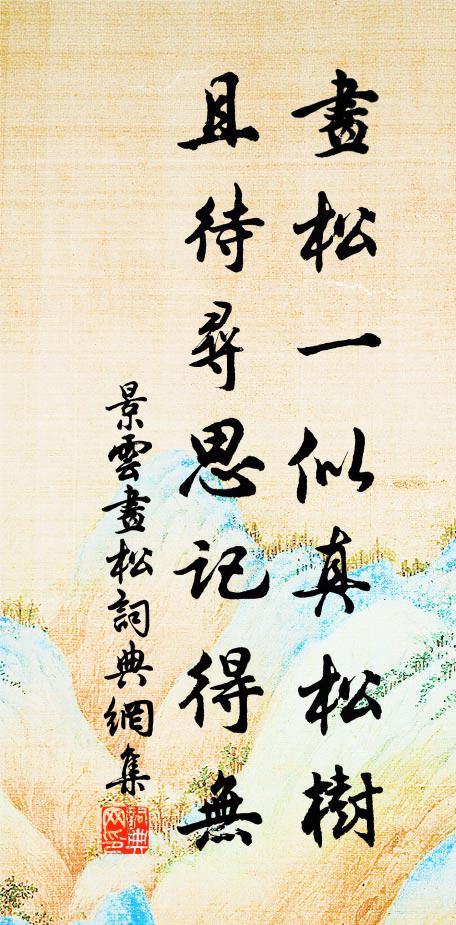 畫松一似真松樹
且待尋思記得無
景雲畫松詞典網集
詞典
网印